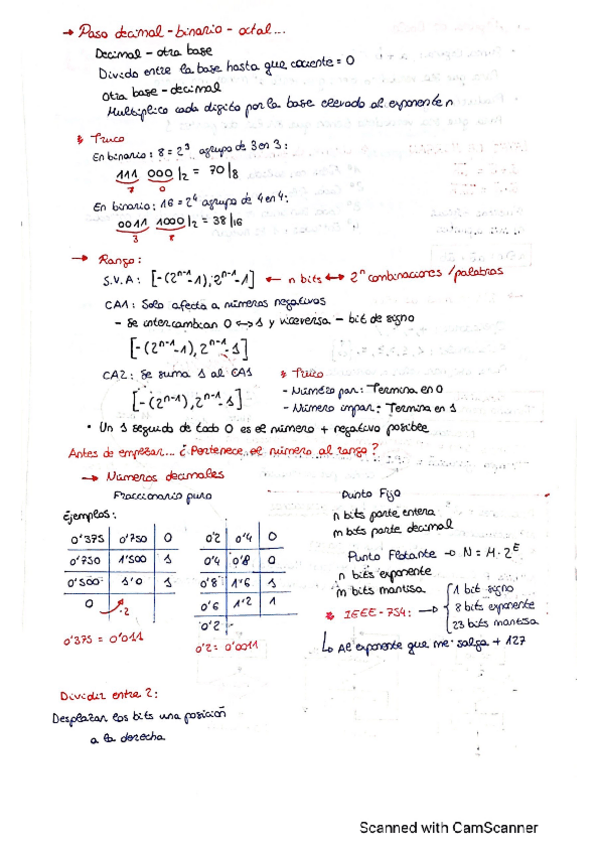 → Paso decimal - binario - octal...
Decimal - otra base
Divido entre la base hasta que cociente = 0
Otra base - decimal
Multiplico cada digito por la base elevado al exponente n
* Truco
En binario: 8 = 2³ agrupo de 3 en 3:
111 000 |2 = 70 |8
7 0
En binario: 16 = 2⁴ agrupo de 4 en 4:
0011 1000 |2 = 38 |16
3 8
→ Rango:
S.V.A: [-(2ⁿ⁻¹-1), 2ⁿ⁻¹-1] ← n bits ↔ 2ⁿ combinaciones / palabras
CA1: Solo afecta a números negativos
- Se intercambian 0 ↔ 1 y viceversa - bit de signo
[-(2ⁿ⁻¹-1), 2ⁿ⁻¹-1]
CA2: Se suma 1 al CA1
[-(2ⁿ⁻¹), 2ⁿ⁻¹-1]
* Truco
- Número par: Termina en 0
- Número impar: Termina en 1
• Un 1 seguido de todo 0 es el número + negativo posible
Antes de empezar... ¿Pertenece el número al rango?
→ Números decimales
Fraccionario puro
Ejemplos:
0'375 0'750 0
0'750 1'500 1
0'500 1'0 1
0 ·2
0'375 = 0'011
0'2 0'4 0
0'4 0'8 0
0'8 1'6 1
0'6 1'2 1
0'2
0'2 = 0'0011
Punto Fijo
n bits parte entera
m bits parte decimal
Punto Flotante → N = M · 2ᴱ
n bits exponente
m bits mantisa
* IEEE-754: → { 1 bit signo
8 bits exponente
23 bits mantisa
↳ Al exponente que me salga + 127
Dividir entre 2:
Desplazar los bits una posición
a la derecha
Scanned with CamScanner